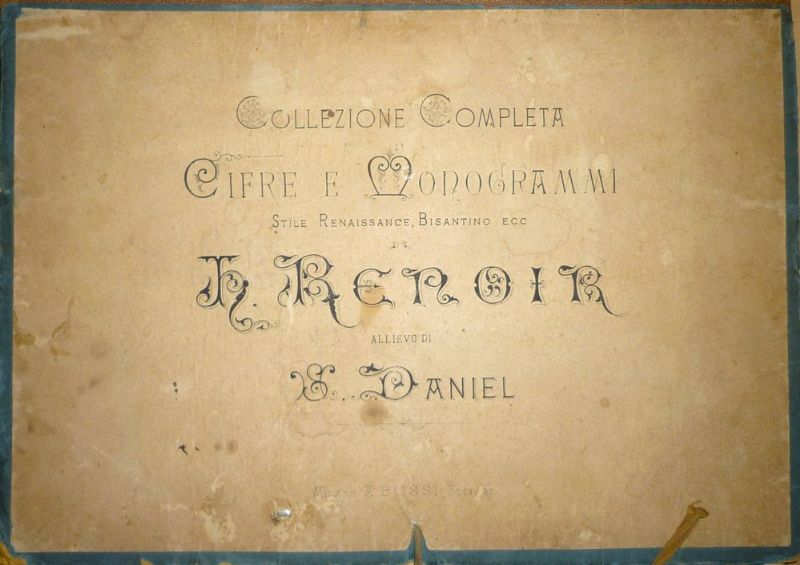 COLLEZIONE COMPLETA
DI
CIFRE E MONOGRAMMI
STILE RENAISSANCE, BISANTINO ECC
DI
H. RENOIR
ALLIEVO DI
S. DANIEL
A. BOSSI